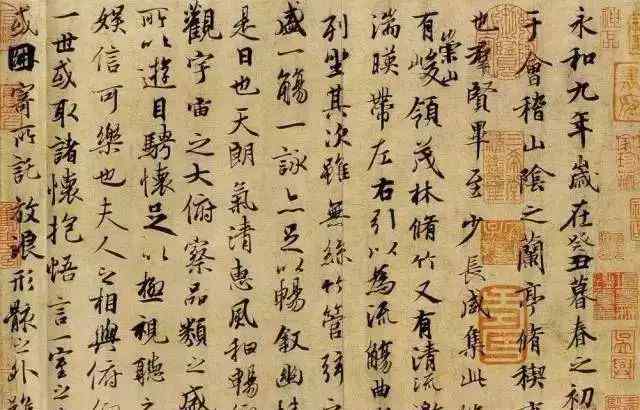 永和九年歲在癸丑暮春之初
于會稽山陰之蘭亭脩稧
也羣賢畢至少長咸集此
有崇山峻領茂林脩竹又有清流
湍暎帶左右引以為流觴曲
列坐其次雖無絲竹管弦
盛一觴一詠亦足以暢叙幽情
是日也天朗氣清惠風和暢
觀宇宙之大俯察品類之盛
所以遊目騁懷足以極視聽之
娛信可樂也夫人之相與俯仰
一世或取諸懷抱悟言一室之
或因寄所託放浪形骸之外雖